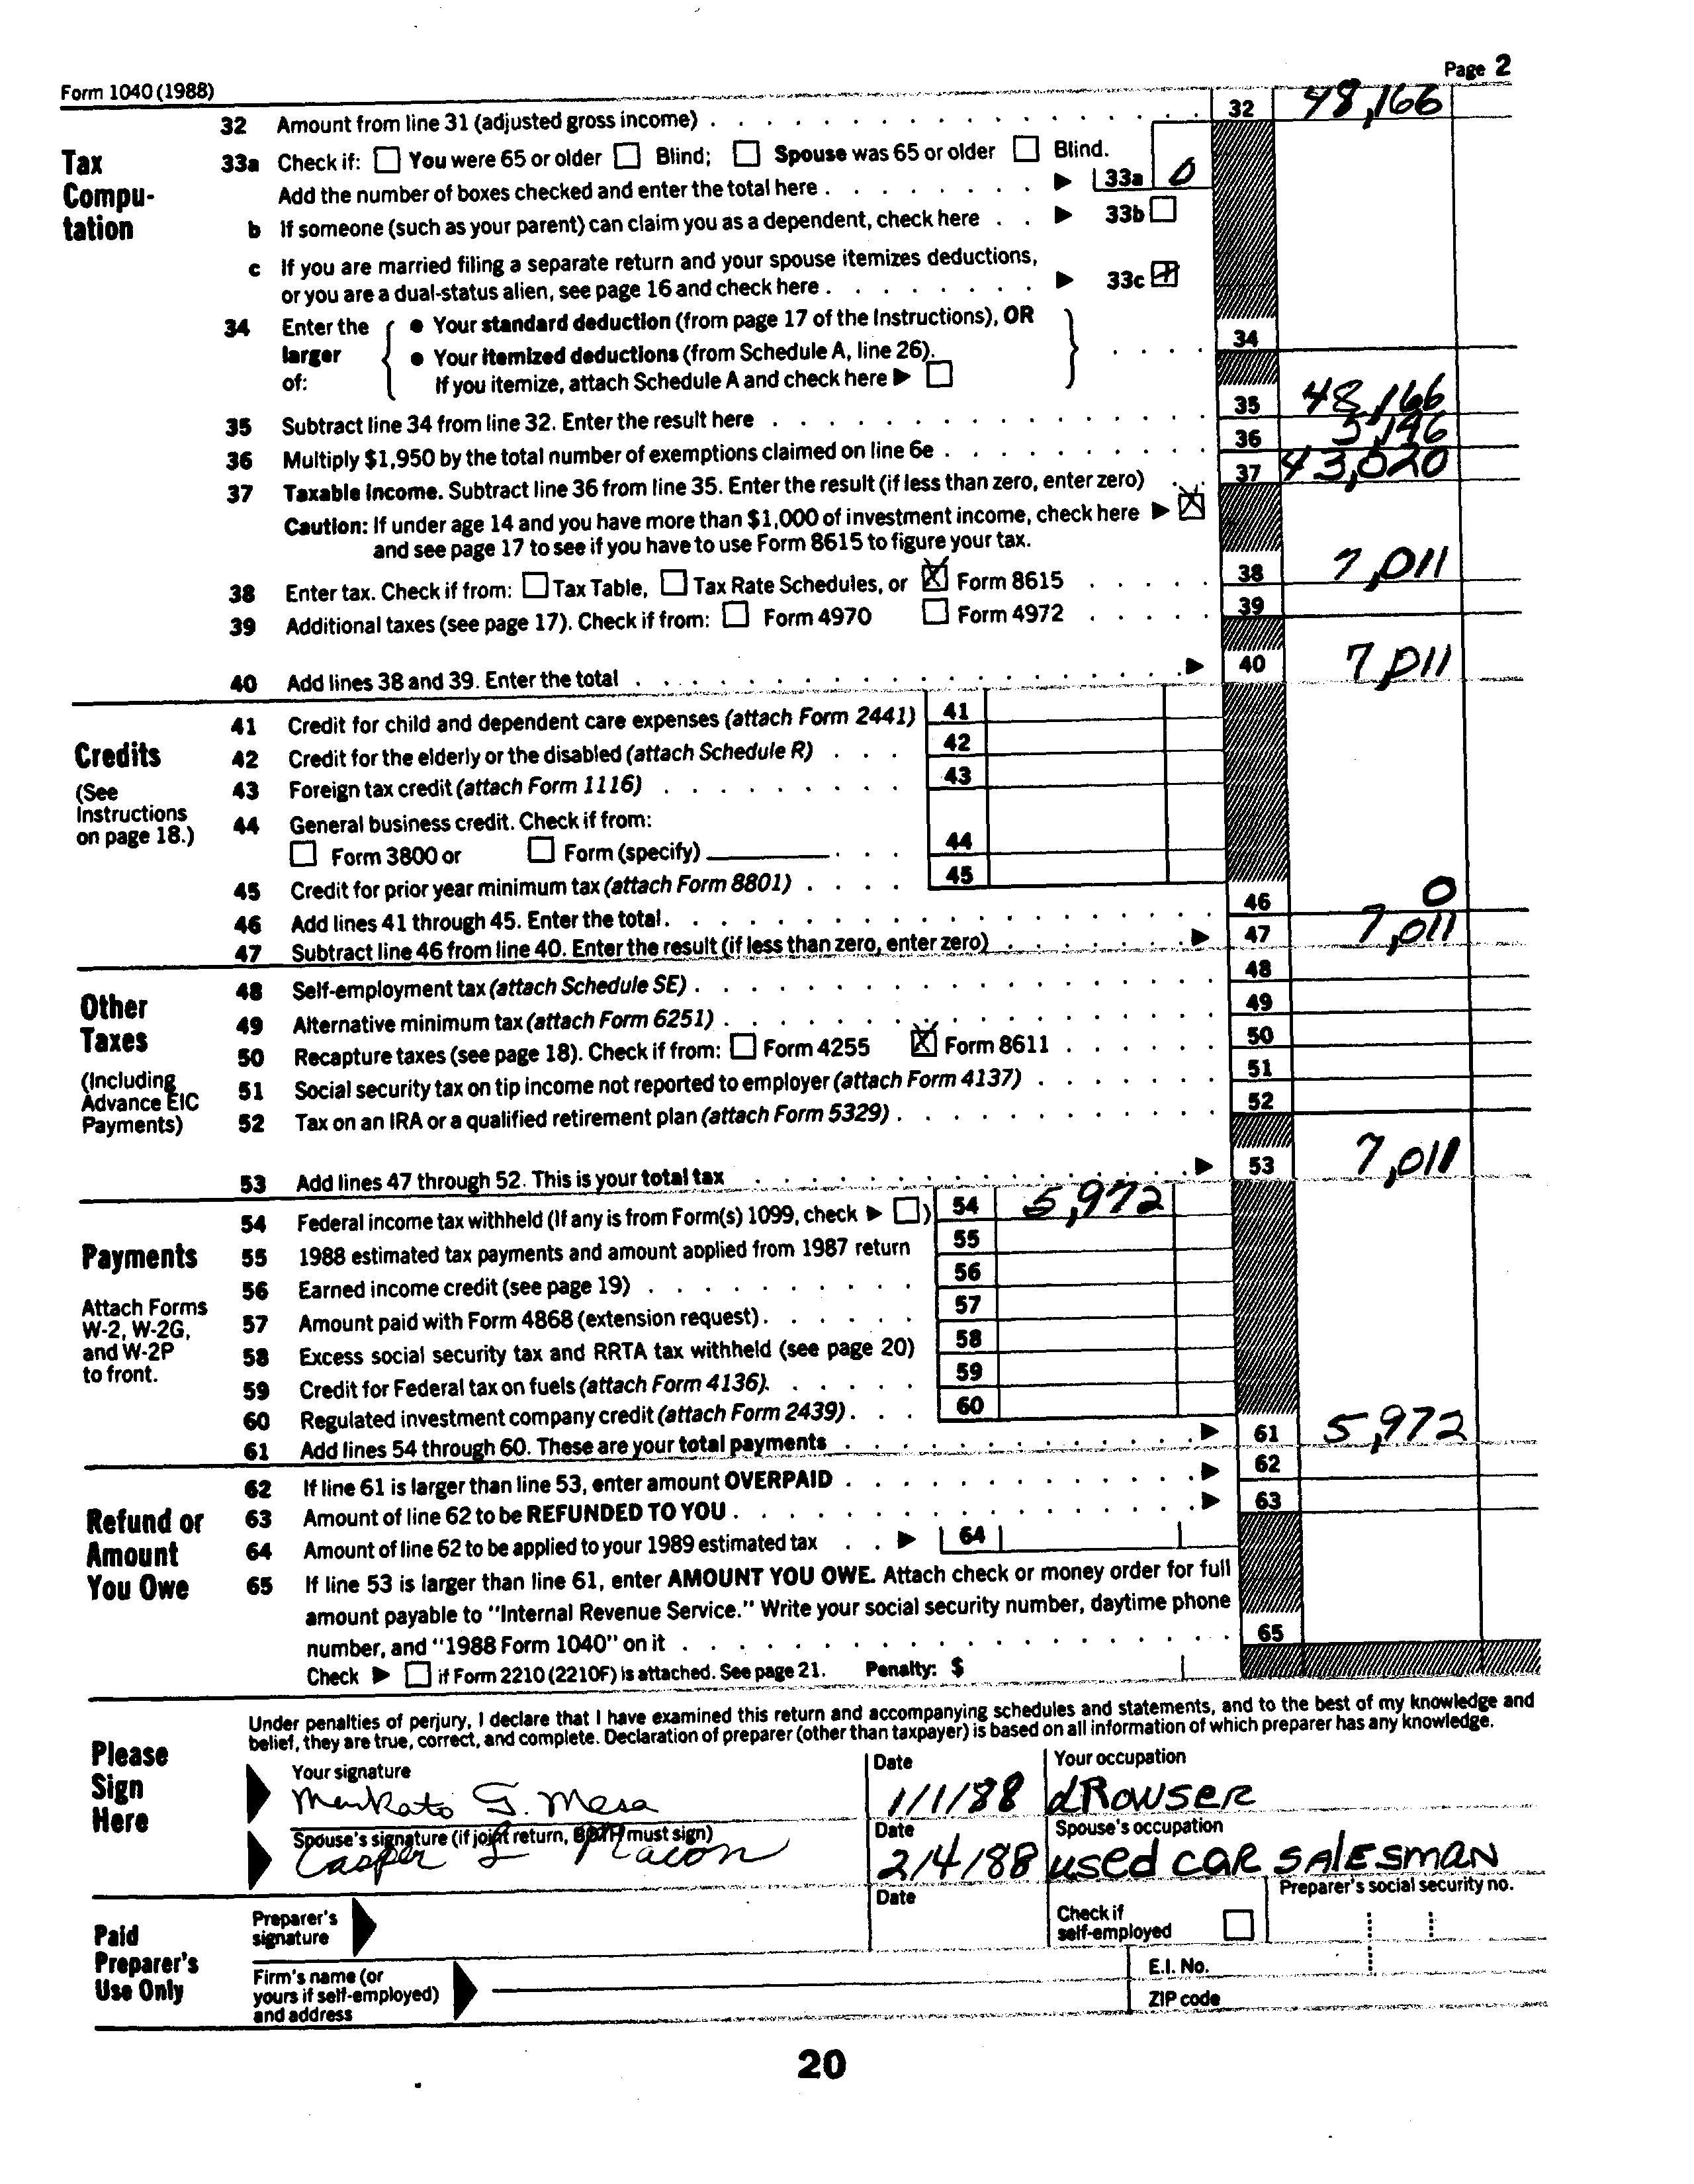 Page 2
Form 1040 (1988)
32 Amount from line 31 (adjusted gross income) 32 48,166
Tax Compu- tation
33a Check if: You were 65 or older Blind; Spouse was 65 or older Blind.
Add the number of boxes checked and enter the total here 33a 0
b If someone (such as your parent) can claim you as a dependent, check here 33b
c If you are married filing a separate return and your spouse itemizes deductions,
or you are a dual-status alien, see page 16 and check here 33c
34 Enter the larger of:
• Your standard deduction (from page 17 of the Instructions), OR
• Your itemized deductions (from Schedule A, line 26). 34
If you itemize, attach Schedule A and check here
35 Subtract line 34 from line 32. Enter the result here 35 48,166
36 Multiply $1,950 by the total number of exemptions claimed on line 6e 36
37 Taxable income. Subtract line 36 from line 35. Enter the result (if less than zero, enter zero) 37 43,020
Caution: If under age 14 and you have more than $1,000 of investment income, check here
and see page 17 to see if you have to use Form 8615 to figure your tax.
38 Enter tax. Check if from: Tax Table, Tax Rate Schedules, or X Form 8615 38 7,011
39 Additional taxes (see page 17). Check if from: Form 4970 Form 4972 39
40 Add lines 38 and 39. Enter the total 40 7,011
Credits
(See Instructions on page 18.)
41 Credit for child and dependent care expenses (attach Form 2441) 41
42 Credit for the elderly or the disabled (attach Schedule R) 42
43 Foreign tax credit (attach Form 1116) 43
44 General business credit. Check if from:
Form 3800 or Form (specify) 44
45 Credit for prior year minimum tax (attach Form 8801) 45
46 Add lines 41 through 45. Enter the total 46 0
47 Subtract line 46 from line 40. Enter the result (if less than zero, enter zero) 47 7,011
Other Taxes
(Including Advance EIC Payments)
48 Self-employment tax (attach Schedule SE) 48
49 Alternative minimum tax (attach Form 6251) 49
50 Recapture taxes (see page 18). Check if from: Form 4255 X Form 8611 50
51 Social security tax on tip income not reported to employer (attach Form 4137) 51
52 Tax on an IRA or a qualified retirement plan (attach Form 5329) 52
53 Add lines 47 through 52. This is your total tax 53 7,011
Payments
Attach Forms W-2, W-2G, and W-2P to front.
54 Federal income tax withheld (If any is from Form(s) 1099, check ) 54 5,972
55 1988 estimated tax payments and amount applied from 1987 return 55
56 Earned income credit (see page 19) 56
57 Amount paid with Form 4868 (extension request) 57
58 Excess social security tax and RRTA tax withheld (see page 20) 58
59 Credit for Federal tax on fuels (attach Form 4136). 59
60 Regulated investment company credit (attach Form 2439) 60
61 Add lines 54 through 60. These are your total payments 61 5,972
Refund or Amount You Owe
62 If line 61 is larger than line 53, enter amount OVERPAID 62
63 Amount of line 62 to be REFUNDED TO YOU 63
64 Amount of line 62 to be applied to your 1989 estimated tax 64
65 If line 53 is larger than line 61, enter AMOUNT YOU OWE. Attach check or money order for full
amount payable to "Internal Revenue Service." Write your social security number, daytime phone
number, and "1988 Form 1040" on it 65
Check if Form 2210 (2210F) is attached. See page 21. Penalty: $
Please Sign Here
Under penalties of perjury, I declare that I have examined this return and accompanying schedules and statements, and to the best of my knowledge and
belief, they are true, correct, and complete. Declaration of preparer (other than taxpayer) is based on all information of which preparer has any knowledge.
Your signature Date Your occupation
Mankato G. Mesa 1/1/88 dRowsER
Spouse's signature (if joint return, BOTH must sign) Date Spouse's occupation
Casper L Macon 2/4/88 used caR SAlESmaN
Paid Preparer's Use Only
Preparer's signature Date Check if self-employed Preparer's social security no.
Firm's name (or yours if self-employed) and address E.I. No.
ZIP code
20